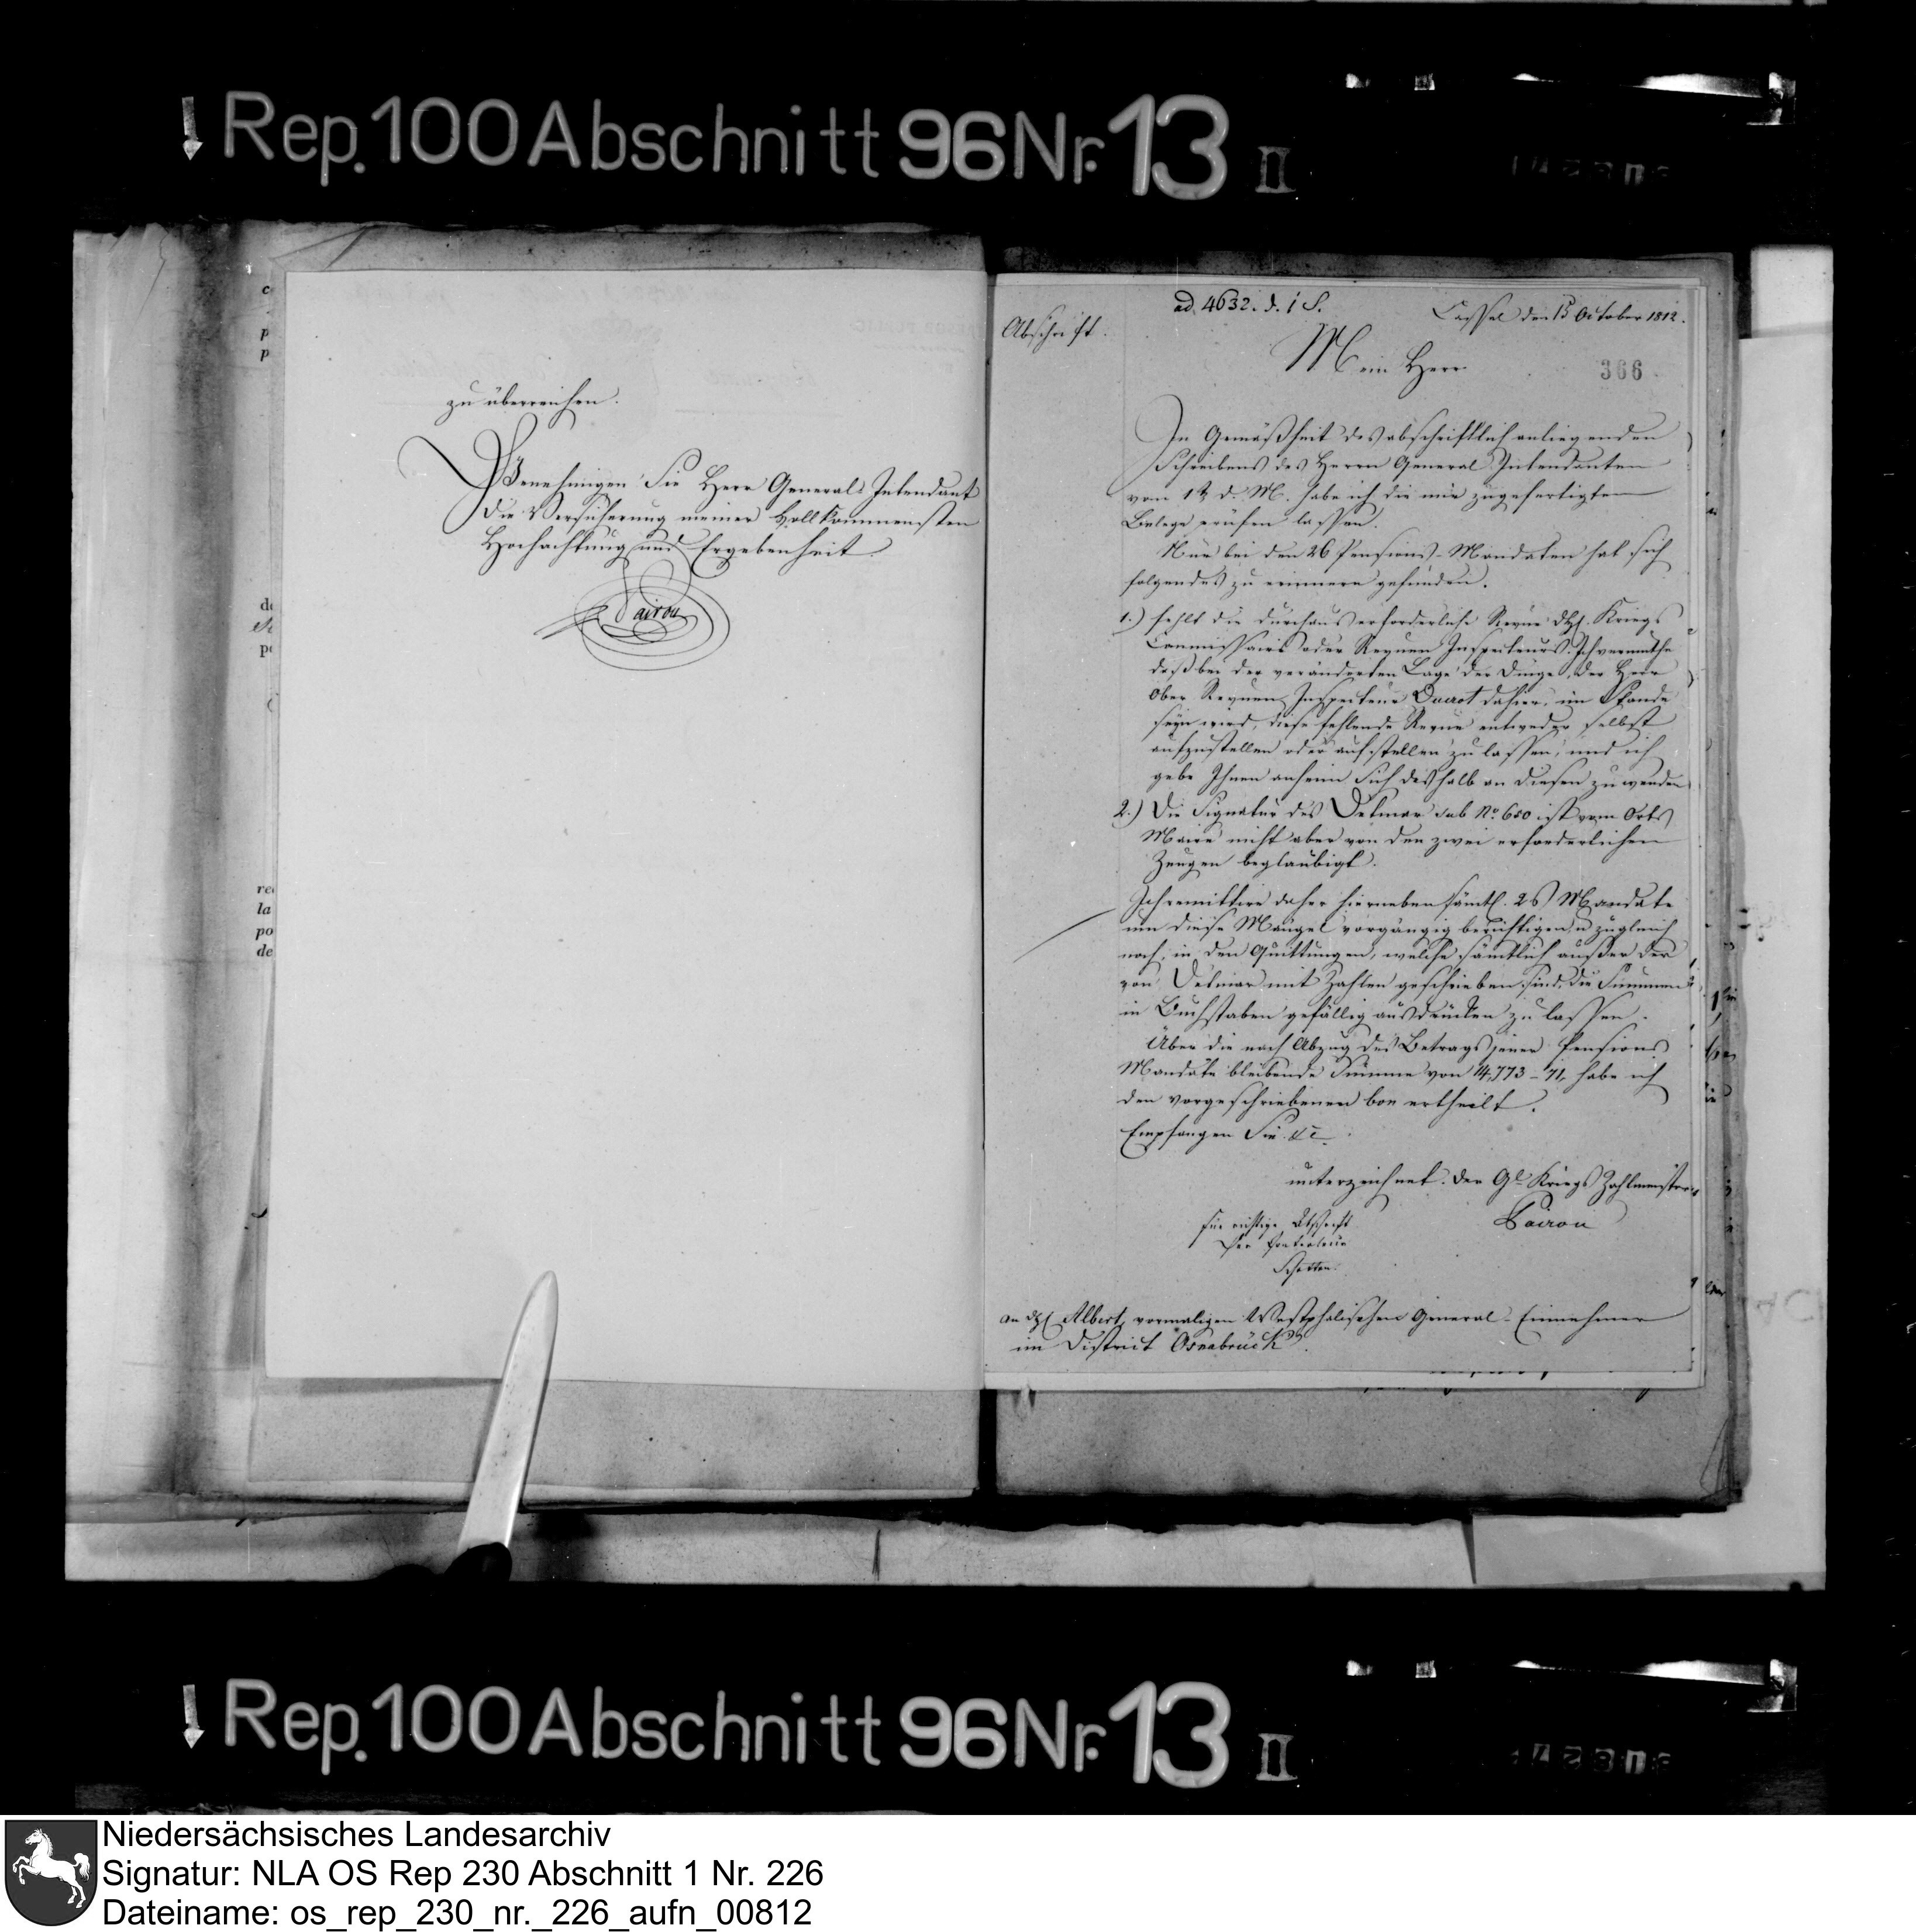 Rep. 100 Abschnitt 96 Nr. 13 II
zu überreichen.
Genehmigen Sie Herr General-Intendant
die Versicherung meiner vollkommensten
Hochachtung und Ergebenheit.
Pairon
ad. 4632. d. i S.
Cassel den 15 October 1812.
Abschrift.
Mein Herr
366
In Gemäßheit des abschriftlich anliegenden
Schreibens des Herrn General Intendanten
vom d. M. habe ich die mir zugefertigten
Belege prüfen lassen.
Nur bei den 26 Pensions-Mandaten hat sich
folgendes zu erinnern gefunden.
1.) fehlt die durchaus erforderliche Revüe des Kriegs
Commissairs oder Revuen Inspecteurs. Ich vermuthe
daß bei der veränderten Lage der Dinge, der Herr
Ober Revuen Inspecteur Ducrot daher, im Stande
seyn wird, diese fehlende Revüe entweder selbst
aufzustellen oder aufstellen zu lassen, und ich
gebe Ihnen anheim sich deshalb an diesen zu wenden
2.) Die Signatur des Detmar sub No. 650 ist vom Orts
Maire nicht aber von den zwei erforderlichen
Zeugen beglaubigt.
Ich remittire daher hierneben sämtl. 26 Mandate
um diese Mängel vorgängig berichtigen u zugleich
noch, in den Quittungen, welche sämtlich außer der
von Detmar mit Zahlen geschrieben sind, die Summen
in Buchstaben gefällig ausdrücken zu lassen.
Über die nach Abzug des Betrags jener Pensions
Mandate bleibende Summe von 14,773 - 71, habe ich
den vorgeschriebenen bon ertheilt.
Empfangen Sie &c.
unterzeichnet. Der Gl. Kriegs Zahlmeister
Pairon
für richtige Abschrift
Der Controleur
Schotten.
an H. Albert, vormaligen Westphälischen General-Einnehmer
im District Osnabrück.
Rep. 100 Abschnitt 96 Nr. 13 II
Niedersächsisches Landesarchiv
Signatur: NLA OS Rep 230 Abschnitt 1 Nr. 226
Dateiname: os_rep_230_nr._226_aufn_00812